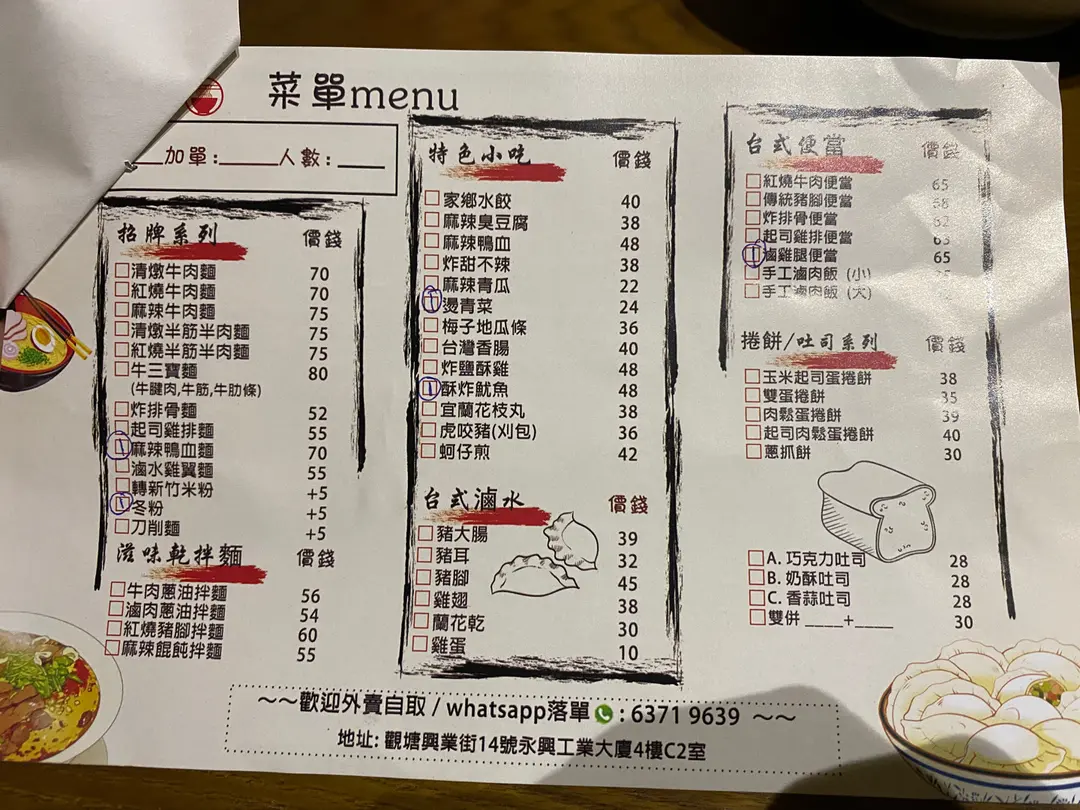 菜單menu
加單:_____人數:___
招牌系列 價錢
清燉牛肉麵 70
紅燒牛肉麵 70
麻辣牛肉麵 75
清燉半筋半肉麵 75
紅燒半筋半肉麵 75
牛三寶麵 80
(牛腱肉,牛筋,牛肋條)
炸排骨麵 52
起司雞排麵 55
麻辣鴨血麵 70
滷水雞翼麵 55
轉新竹米粉 +5
冬粉 +5
刀削麵 +5
滋味乾拌麵 價錢
牛肉蔥油拌麵 56
滷肉蔥油拌麵 54
紅燒豬腳拌麵 60
麻辣餛飩拌麵 55
特色小吃 價錢
家鄉水餃 40
麻辣臭豆腐 38
麻辣鴨血 48
炸甜不辣 38
麻辣青瓜 22
燙青菜 24
梅子地瓜條 36
台灣香腸 40
炸鹽酥雞 48
酥炸魷魚 48
宜蘭花枝丸 38
虎咬豬(刈包) 36
蚵仔煎 42
台式滷水 價錢
豬大腸 39
豬耳 32
豬腳 45
雞翅 38
蘭花乾 30
雞蛋 10
台式便當 價錢
紅燒牛肉便當 65
傳統豬腳便當 58
炸排骨便當 62
起司雞排便當 63
滷雞腿便當 65
手工滷肉飯 (小)
手工滷肉飯 (大)
捲餅/吐司系列 價錢
玉米起司蛋捲餅 38
雙蛋捲餅 35
肉鬆蛋捲餅 39
起司肉鬆蛋捲餅 40
蔥抓餅 30
A. 巧克力吐司 28
B. 奶酥吐司 28
C. 香蒜吐司 28
雙併 ____+____ 30
~~歡迎外賣自取 / whatsapp落單 : 6371 9639 ~~
地址: 觀塘興業街14號永興工業大廈4樓C2室